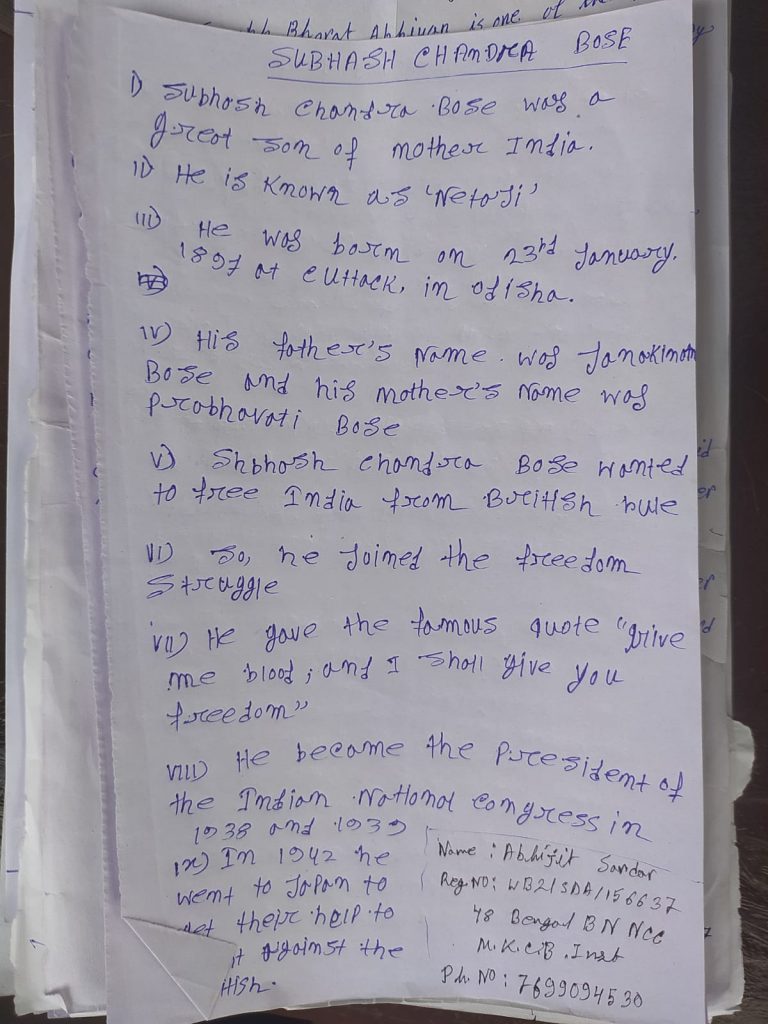 Bharat Abhiyan is one of the
SUBHASH CHANDRA BOSE
I) Subhash Chandra Bose was a
great son of mother India.
II) He is known as 'Netaji'
III) He was born on 23rd January.
1897 at Cuttack, in Odisha.
IV) His father's Name. was Janakinath
Bose and his mother's Name was
Prabhavati Bose
V) Shbhash Chandra Bose wanted
to free India from British rule
VI) So, he joined the freedom
Struggle
VII) He gave the famous quote "Give
me blood; and I shall give you
freedom"
VIII) He became the President of
the Indian National Congress in
1938 and 1939
IX) In 1942 he
went to Japan to
get their help to
against the
tish.
Name : Abhijit Sardar
Reg NO: WB21SDA/156637
48 Bengal BN NCC
M.K.C.B. Inst
Ph. NO : 7699094530